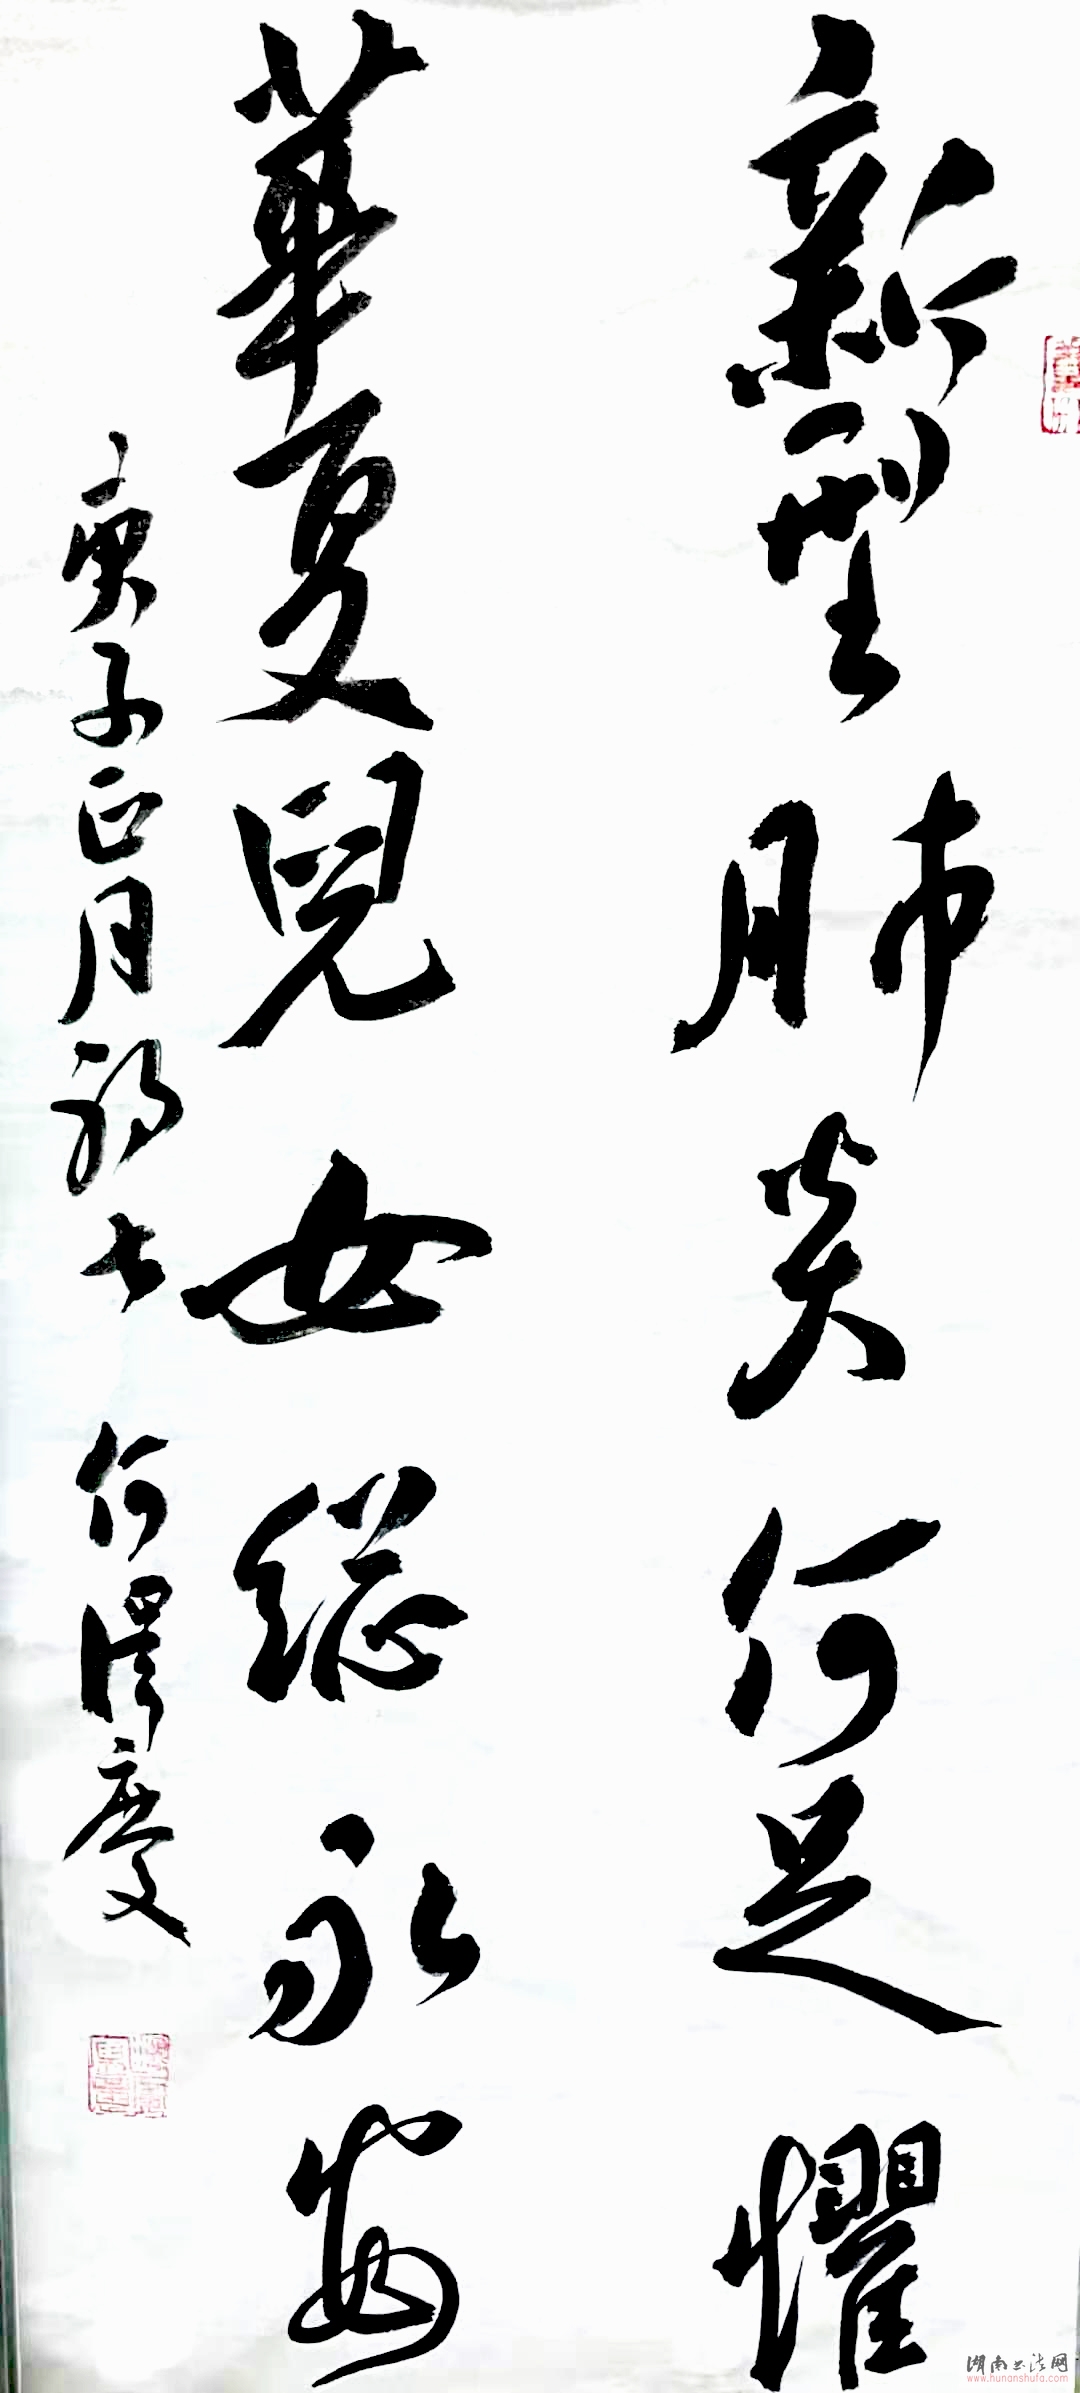 新型肺炎何足懼
華夏兒女總永安
庚子正月初七 何澤慶
湖南书法网
www.hunanshufa.com